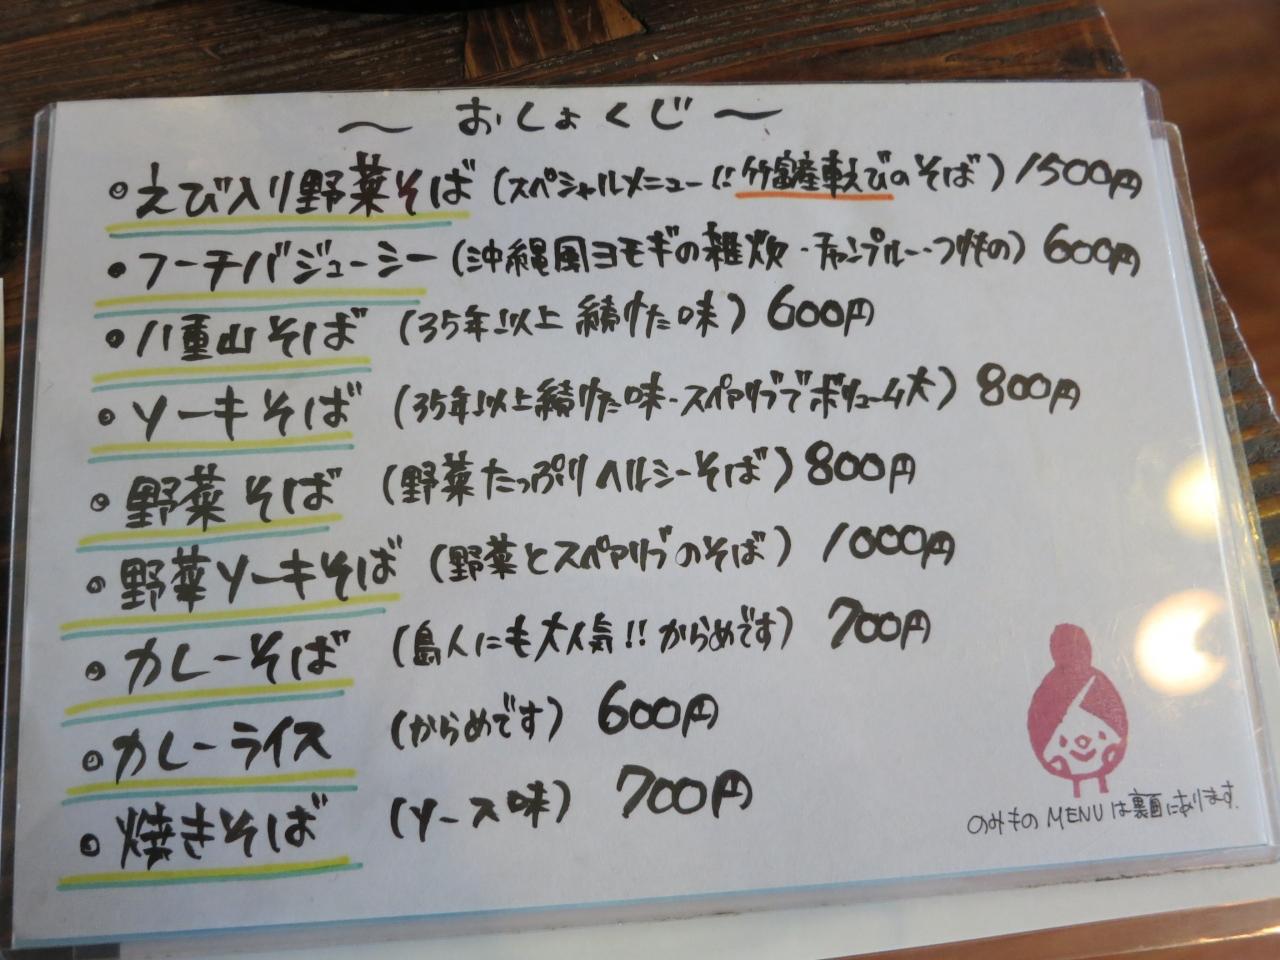 ～ おしょくじ ～
◦ えび入り野菜そば (スペシャルメニュー!! 竹富産車えびのそば) 1500円
• フーチバジューシー (沖縄風ヨモギの雑炊・チャンプルー・つけもの) 600円
• 八重山そば (35年以上続けた味) 600円
◦ ソーキそば (35年以上続けた味・スペアリブでボリューム大) 800円
◦ 野菜そば (野菜たっぷりヘルシーそば) 800円
◦ 野菜ソーキそば (野菜とスペアリブのそば) 1000円
◦ カレーそば (島人にも大人気!! からめです) 700円
◦ カレーライス (からめです) 600円
◦ 焼きそば (ソース味) 700円
のみもの MENU は裏面にあります.